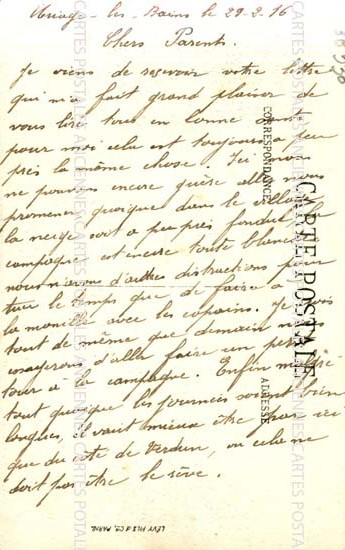 Uriage-les-Bains le 29-2-16
Chers Parents.
Je viens de recevoir votre lettre
qui m'a fait grand plaisir de
vous lire tous en bonne santé
pour moi cela est toujours à peu
près la même chose. Ici nous
ne pouvons encore guère aller nous
promener quoique dans le village
la neige soit à peu près fondue la
campagne est encore toute blanche
nous n'avons d'autres distractions pour
tuer le temps que de faire à
la manille avec les copains. Je crois
tout de même que demain nous
essayerons d'aller faire un petit
tour à la campagne. Enfin malgré
tout quoique les journées soient bien
longues, il vaut mieux être par ici
que du côté de Verdun, ou cela ne
doit pas être le rêve.
CARTE POSTALE
CORRESPONDANCE
ADRESSE
LÉVY FILS & Cie, PARIS